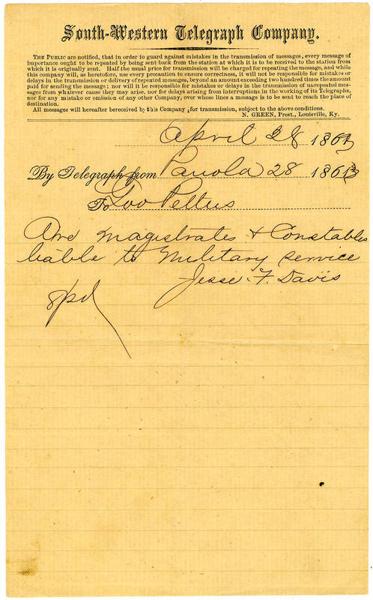 South-Western Telegraph Company.
THE PUBLIC are notified, that in order to guard against mistakes in the transmission of messages, every message of
importance ought to be repeated by being sent back from the station at which it is to be received to the station from
which it is originally sent. Half the usual price for transmission will be charged for repeating the message, and while
this company will, as heretofore, use every precaution to ensure correctness, it will not be responsible for mistakes or
delays in the transmission or delivery of repeated messages, beyond an amount exceeding two hundred times the amount
paid for sending the message; nor will it be responsible for mistakes or delays in the transmission of unrepeated mes-
sages from whatever cause they may arise, nor for delays arising from interruptions in the working of its Telegraphs,
nor for any mistake or omission of any other Company, over whose lines a message is to be sent to reach the place of
destination.
All messages will hereafter be received by this Company for transmission, subject to the above conditions.
N. GREEN, Prest., Louisville, Ky.
April 28 1863
By Telegraph from Panola 28 1863
To Gov Pettus
Are magistrates & Constables
liable to Military service
Jesse F. Davis
8pd